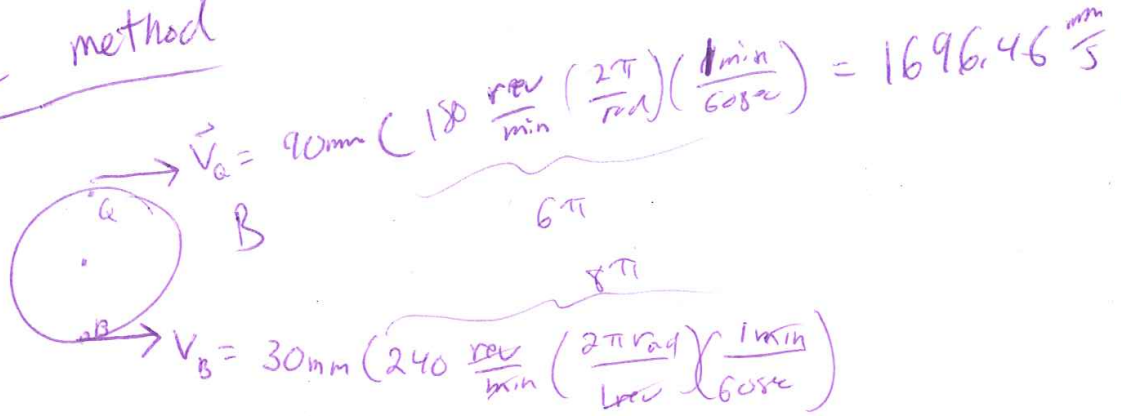 method
V⃗_Q = 90mm ( 180 rev/min (2π/rad)(1min/60sec) = 1696.46 mm/s
6π
Q
B
8π
B
V_B = 30mm (240 rev/min (2πrad/1rev)(1min/60sec)